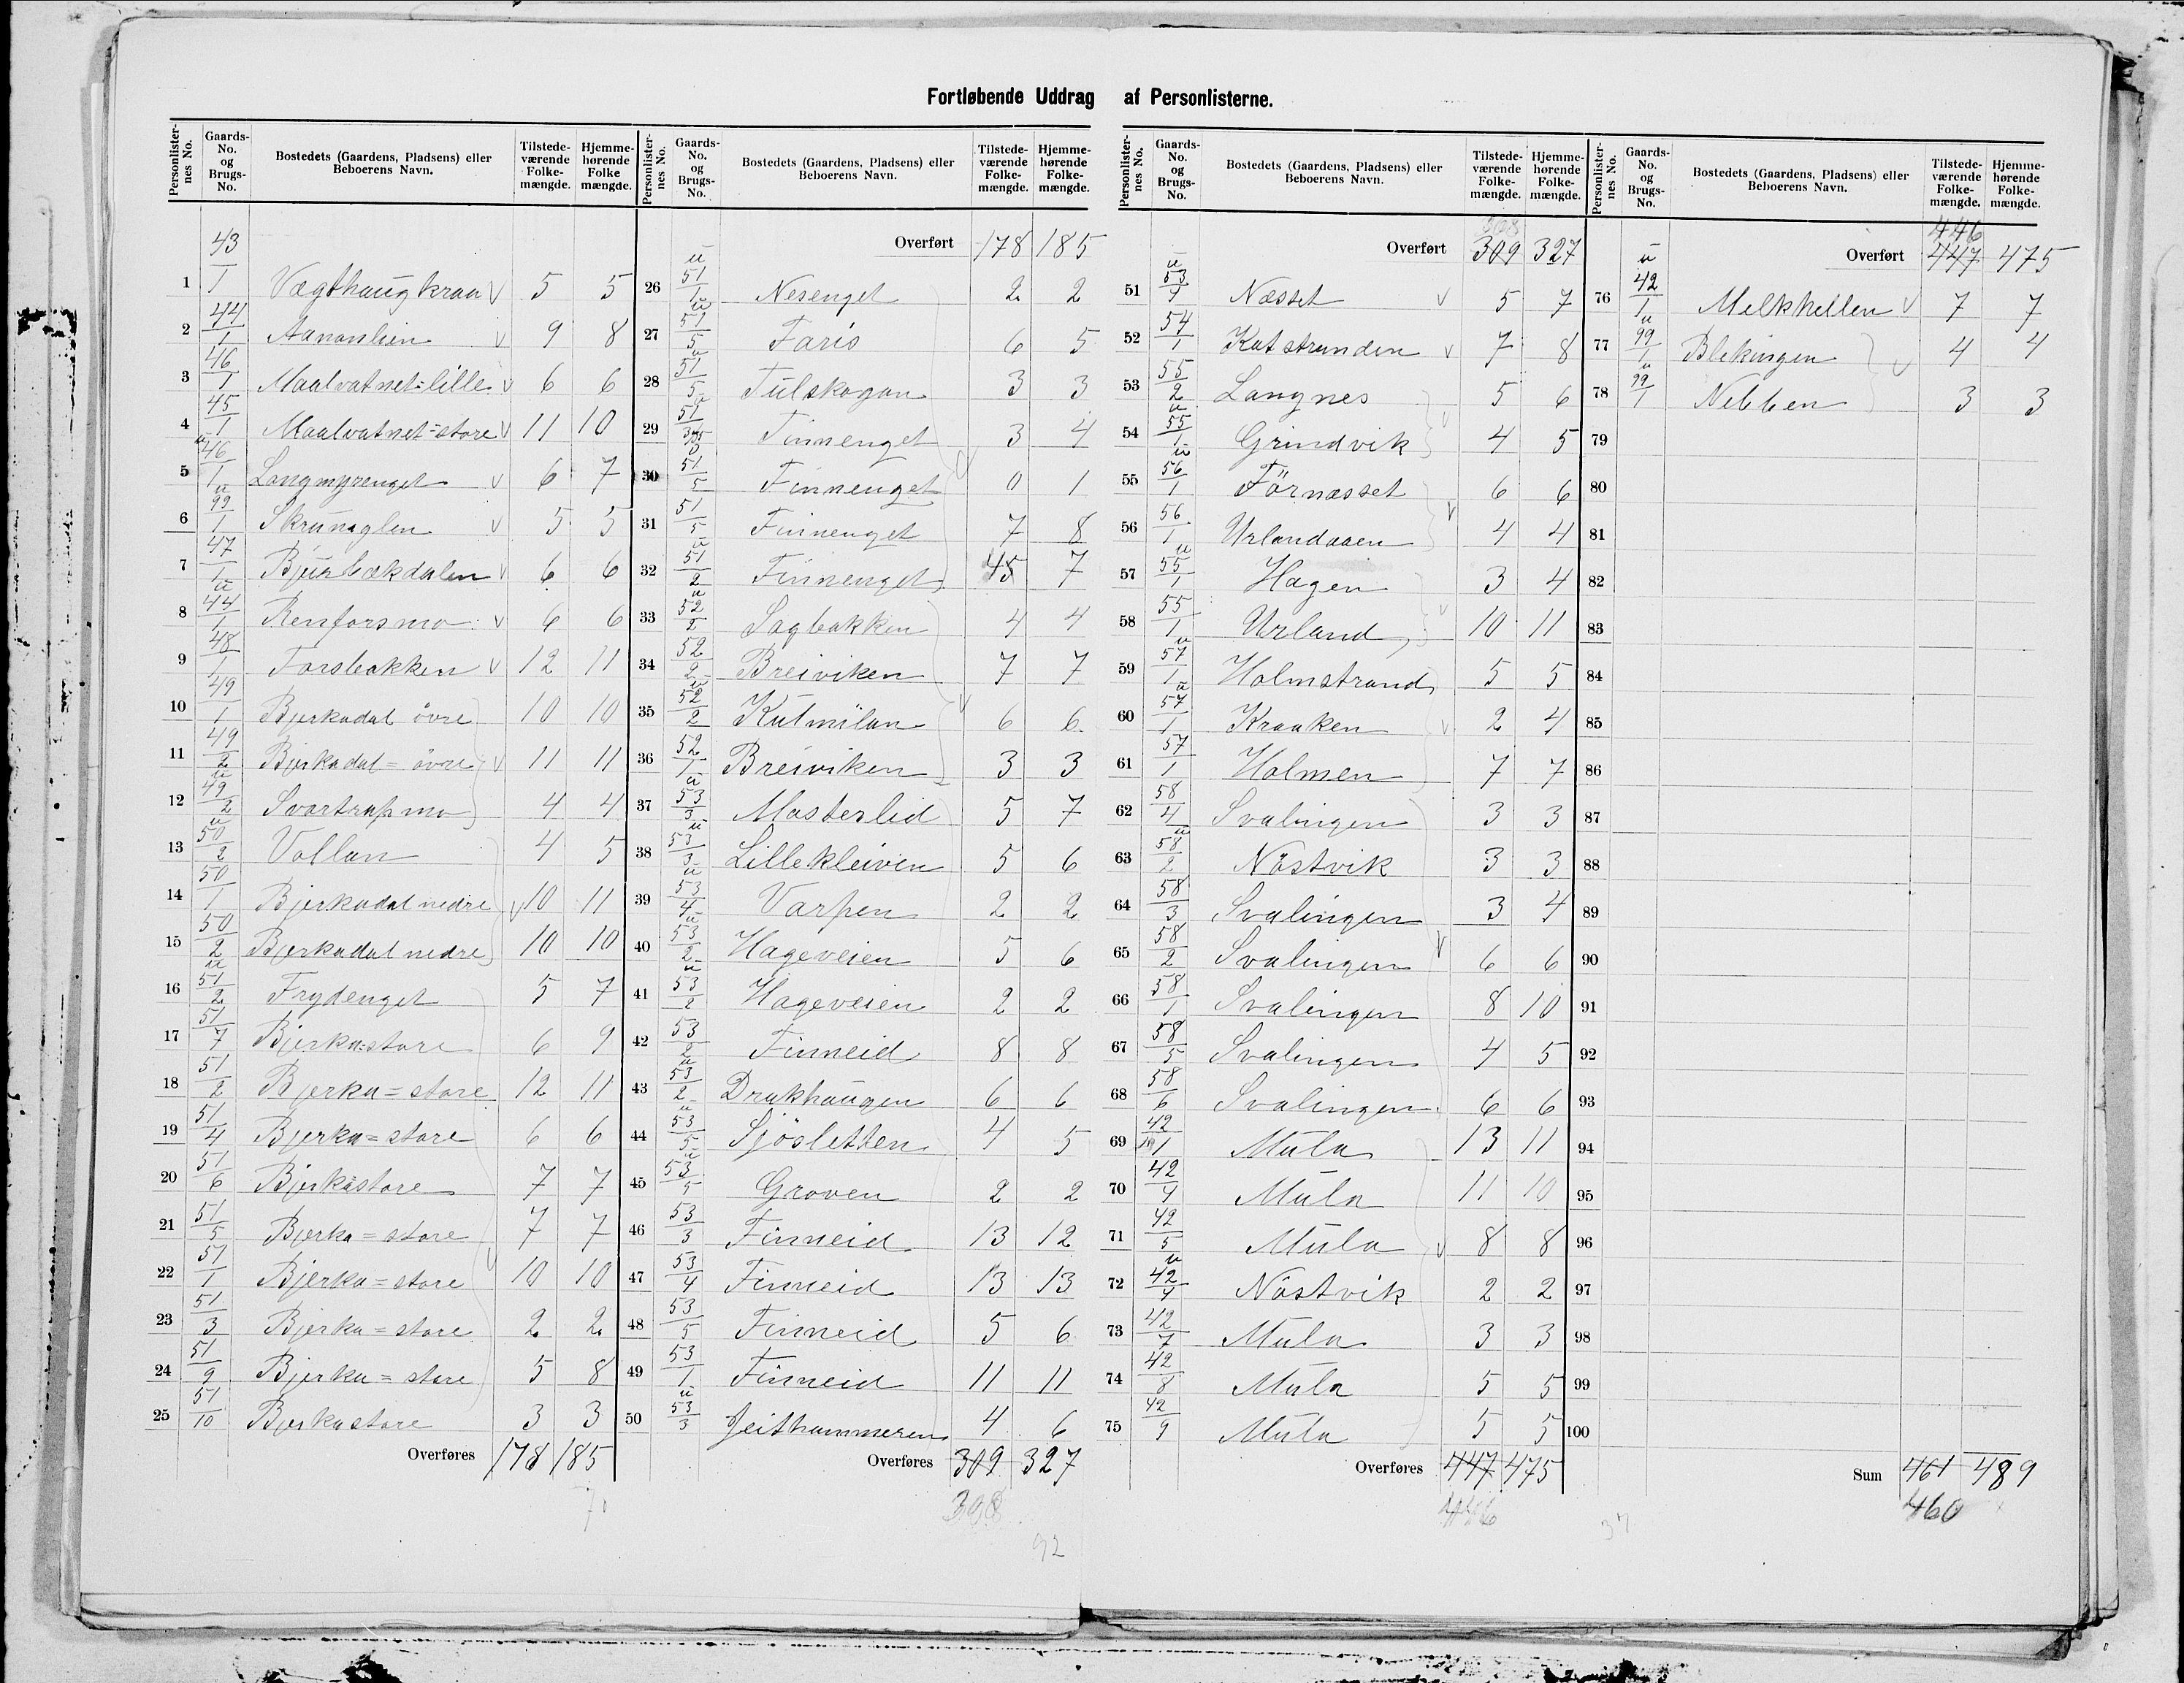 Fortløbende Uddrag af Personlisterne.
Personlister-nes No. | Gaards-No. og Brugs-No. | Bostedets (Gaardens, Pladsens) eller Beboerens Navn. | Tilstede-værende Folke-mængde. | Hjemme-hørende Folke mængde.
1 43/1 Vægthaugkraa v 5 5
2 44/1 Aanonlien v 9 8
3 46/1 Maalvatnet=lille v 6 6
4 45/1 Maalvatnet=store v 11 10
5 u 46/1 Langmyrenget v 6 7
6 u 99/1 v 5 5
7 47/1 Bjurbækdalen v 6 6
8 u 44/1 Renforsmo v 6 6
9 48/1 Forsbakken v 12 11
10 49/1 Bjerkadal övre 10 10
11 49/2 Bjerkadal=övre v 11 11
12 u 49/2 Svartrapmo 4 4
13 u 50/2 Vollan 4 5
14 50/1 Bjerkadal nedre v 10 11
15 50/2 Bjerkadal nedre 10 10
16 u 51/2 Frydenget 5 7
17 51/7 Bjerka=store 6 9
18 51/2 Bjerka=store 12 11
19 51/4 Bjerka=store 6 6
20 51/6 Bjerkastore 7 7
21 51/5 Bjerka=store 7 7
22 51/1 Bjerka=store v 10 10
23 51/3 Bjerka=store 2 2
24 51/9 Bjerka=store 5 8
25 51/10 Bjerkastore 3 3
Overføres 178 185
70
Personlister-nes No. | Gaards-No. og Brugs-No. | Bostedets (Gaardens, Pladsens) eller Beboerens Navn. | Tilstede-værende Folke-mængde. | Hjemme-hørende Folke-mængde.
Overført 178 185
26 u 51/1 Nesenget 2 2
27 u 51/5 Faris 6 5
28 u 51/5 Tulskogan 3 3
29 u 51 Finnenget 3 4
30 51/5 Finnenget v 0 1
31 51/5 Finnenget 7 8
32 u 51/2 Finnenget 7
33 u 52/2 Sagbakken 4 4
34 52/2 Breiviken 7 7
35 u 52/2 Kulmilan v 6 6
36 52/1 Breiviken 3 3
37 u 53/3 Masterlid 5 7
38 u 53/3 Lillekleiven 5 6
39 u 53/4 Varpen 2 2
40 u 53/2 Hageveien 5 6
41 u 53/2 Hageveien 2 2
42 53/2 Finneid 8 8
43 u 53/2 Drakhaugen 6 6
44 u 53/5 Sjösletten 4 5
45 u 53/5 Groven 2 2
46 53/3 Finneid 13 12
47 53/4 Finneid 13 13
48 53/5 Finneid 5 6
49 53/1 Finneid 11 11
50 u 53/3 Jeithammeren 4 6
Overføres 309 327
308
92
Personlister-nes No. | Gaards-No. og Brugs-No. | Bostedets (Gaardens, Pladsens) eller Beboerens Navn. | Tilstede-værende Folke-mængde. | Hjemme-hørende Folke-mængde.
308
Overført 309 327
51 u 53/4 Næsset v 5 7
52 54/1 Katstranden v 7 8
53 55/2 Langnes 5 6
54 u 55/1 Grindvik v 4 5
55 u 56/1 Förnæsset 6 6
56 56/1 Urlandaaen v 4 4
57 u 55/1 Hagen 3 4
58 55/1 Urland v 10 11
59 u 57/1 Holmstrand 5 5
60 u 57/1 Kraaken v 2 4
61 57/1 Holmen 7 7
62 58/4 Svalingen 3 3
63 u 58/2 Nöstvik 3 3
64 58/3 Svalingen 3 4
65 58/2 Svalingen v 6 6
66 58/1 Svalingen 8 10
67 58/5 Svalingen 4 5
68 58/6 Svalingen 6 6
69 42/1 Mula 13 11
70 42/4 Mula 11 10
71 42/5 Mula v 8 8
72 u 42/4 Nöstvik 2 2
73 42/7 Mula 3 3
74 42/8 Mula 5 5
75 42/9 Mula 5 5
Overføres 447 475
446
37
Personlister-nes No. | Gaards-No. og Brugs-No. | Bostedets (Gaardens, Pladsens) eller Beboerens Navn. | Tilstede-værende Folke-mængde. | Hjemme-hørende Folke-mængde.
446
Overført 447 475
76 u 42/1 Melkhellen v 7 7
77 u 99/1 Blekingen v 4 4
78 u 99/1 Nebben 3 3
79
80
81
82
83
84
85
86
87
88
89
90
91
92
93
94
95
96
97
98
99
100
Sum 461 489
460